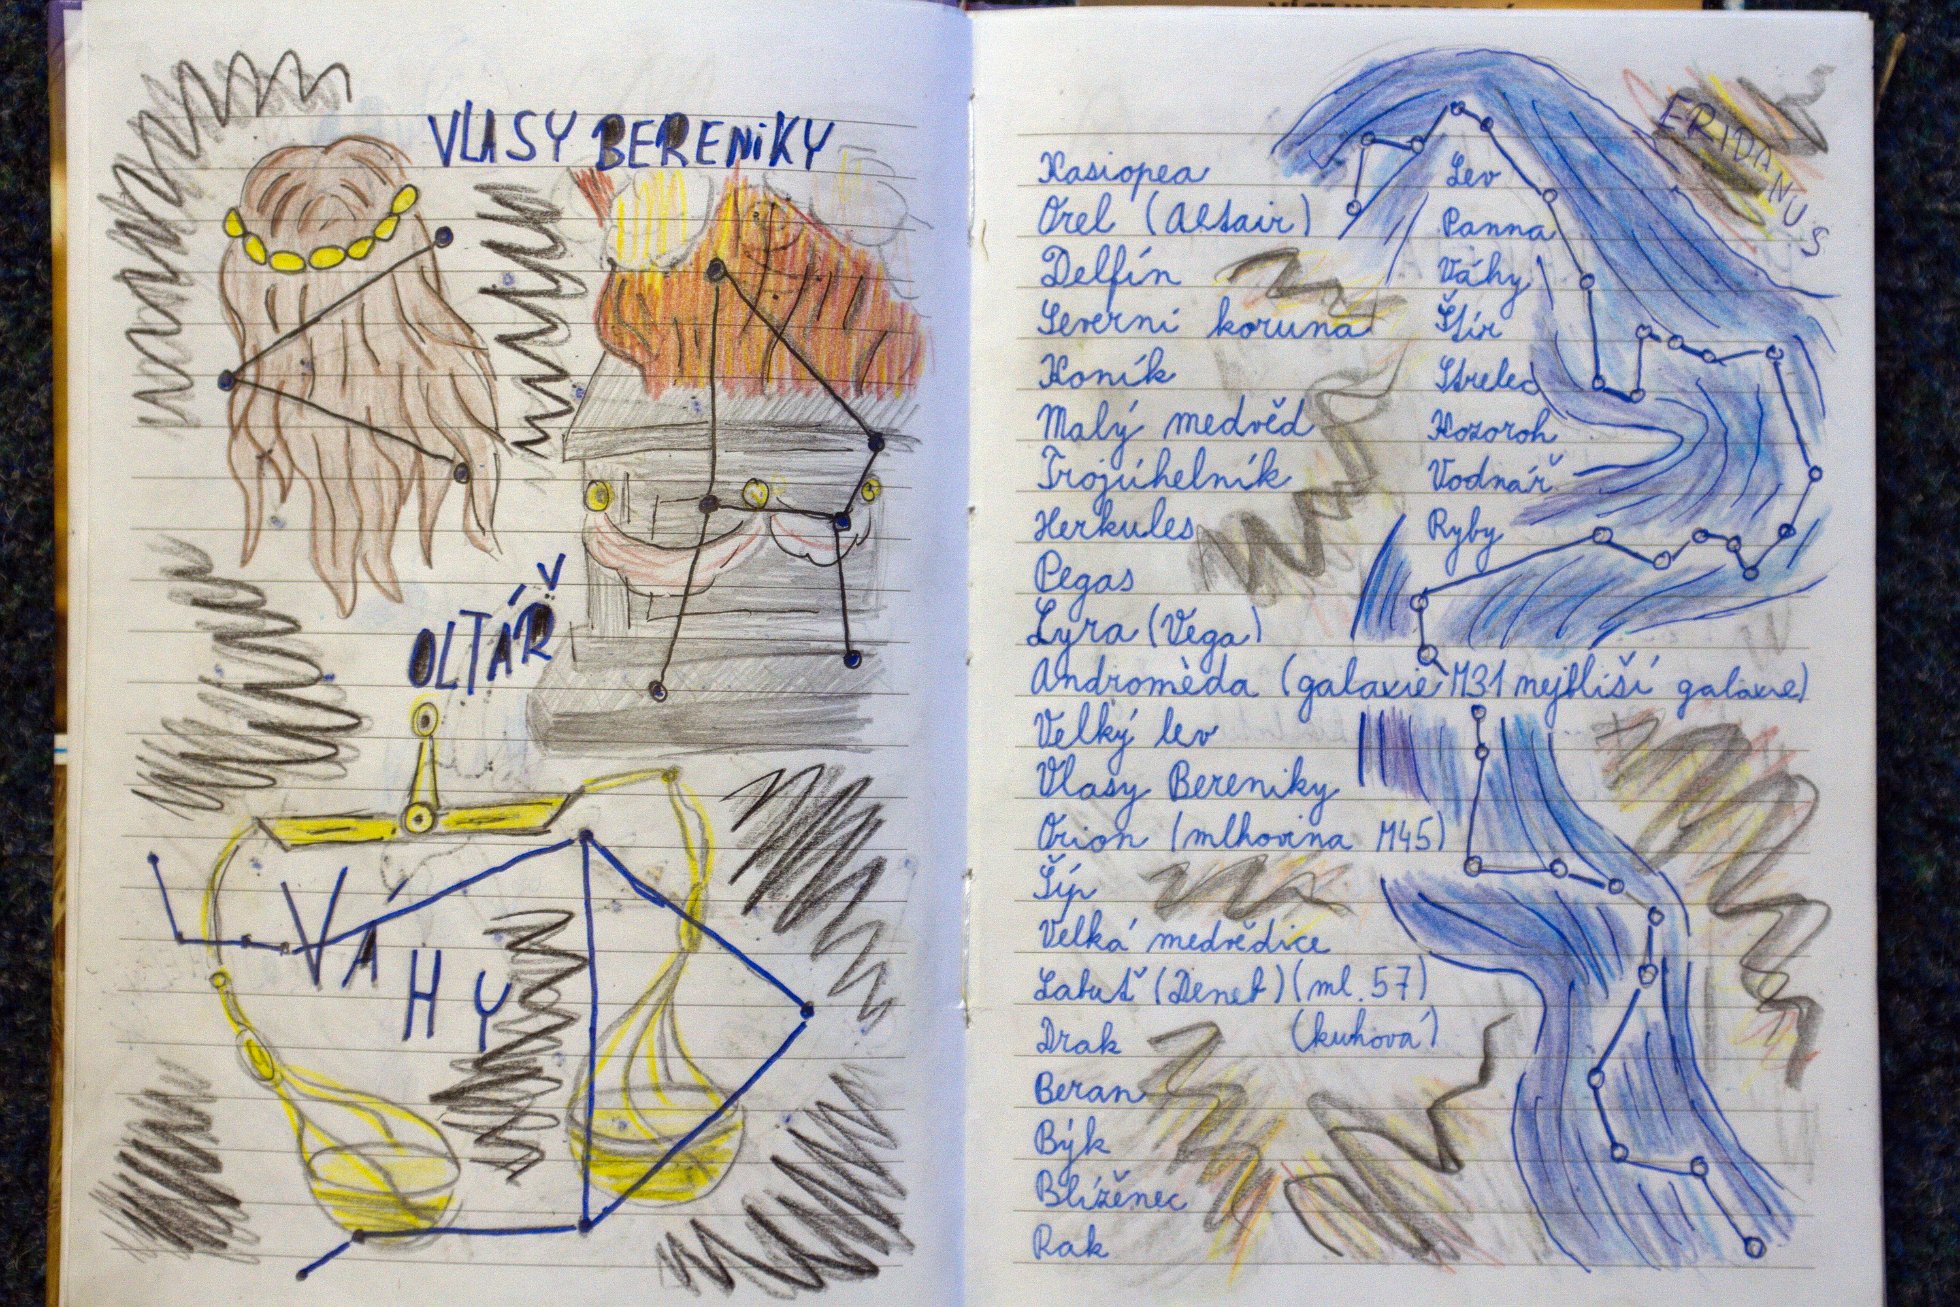 VLASY BERENIKY
OLTÁŘ
VÁHY
ERIDANUS
Kasiopea
Orel (Altair)
Delfín
Severní koruna
Koník
Malý medvěd
Trojúhelník
Herkules
Pegas
Lyra (Vega)
Androměda (galaxie M31 nejbliší galaxie)
Velký lev
Vlasy Bereniky
Orion (mlhovina M45)
Šíp
Velká medvědice
Labuť (Deneb) (ml. 57)
Drak (kuhová)
Beran
Býk
Blížěnec
Rak
Lev
Panna
Váhy
Štír
Střelec
Kozoroh
Vodnář
Ryby